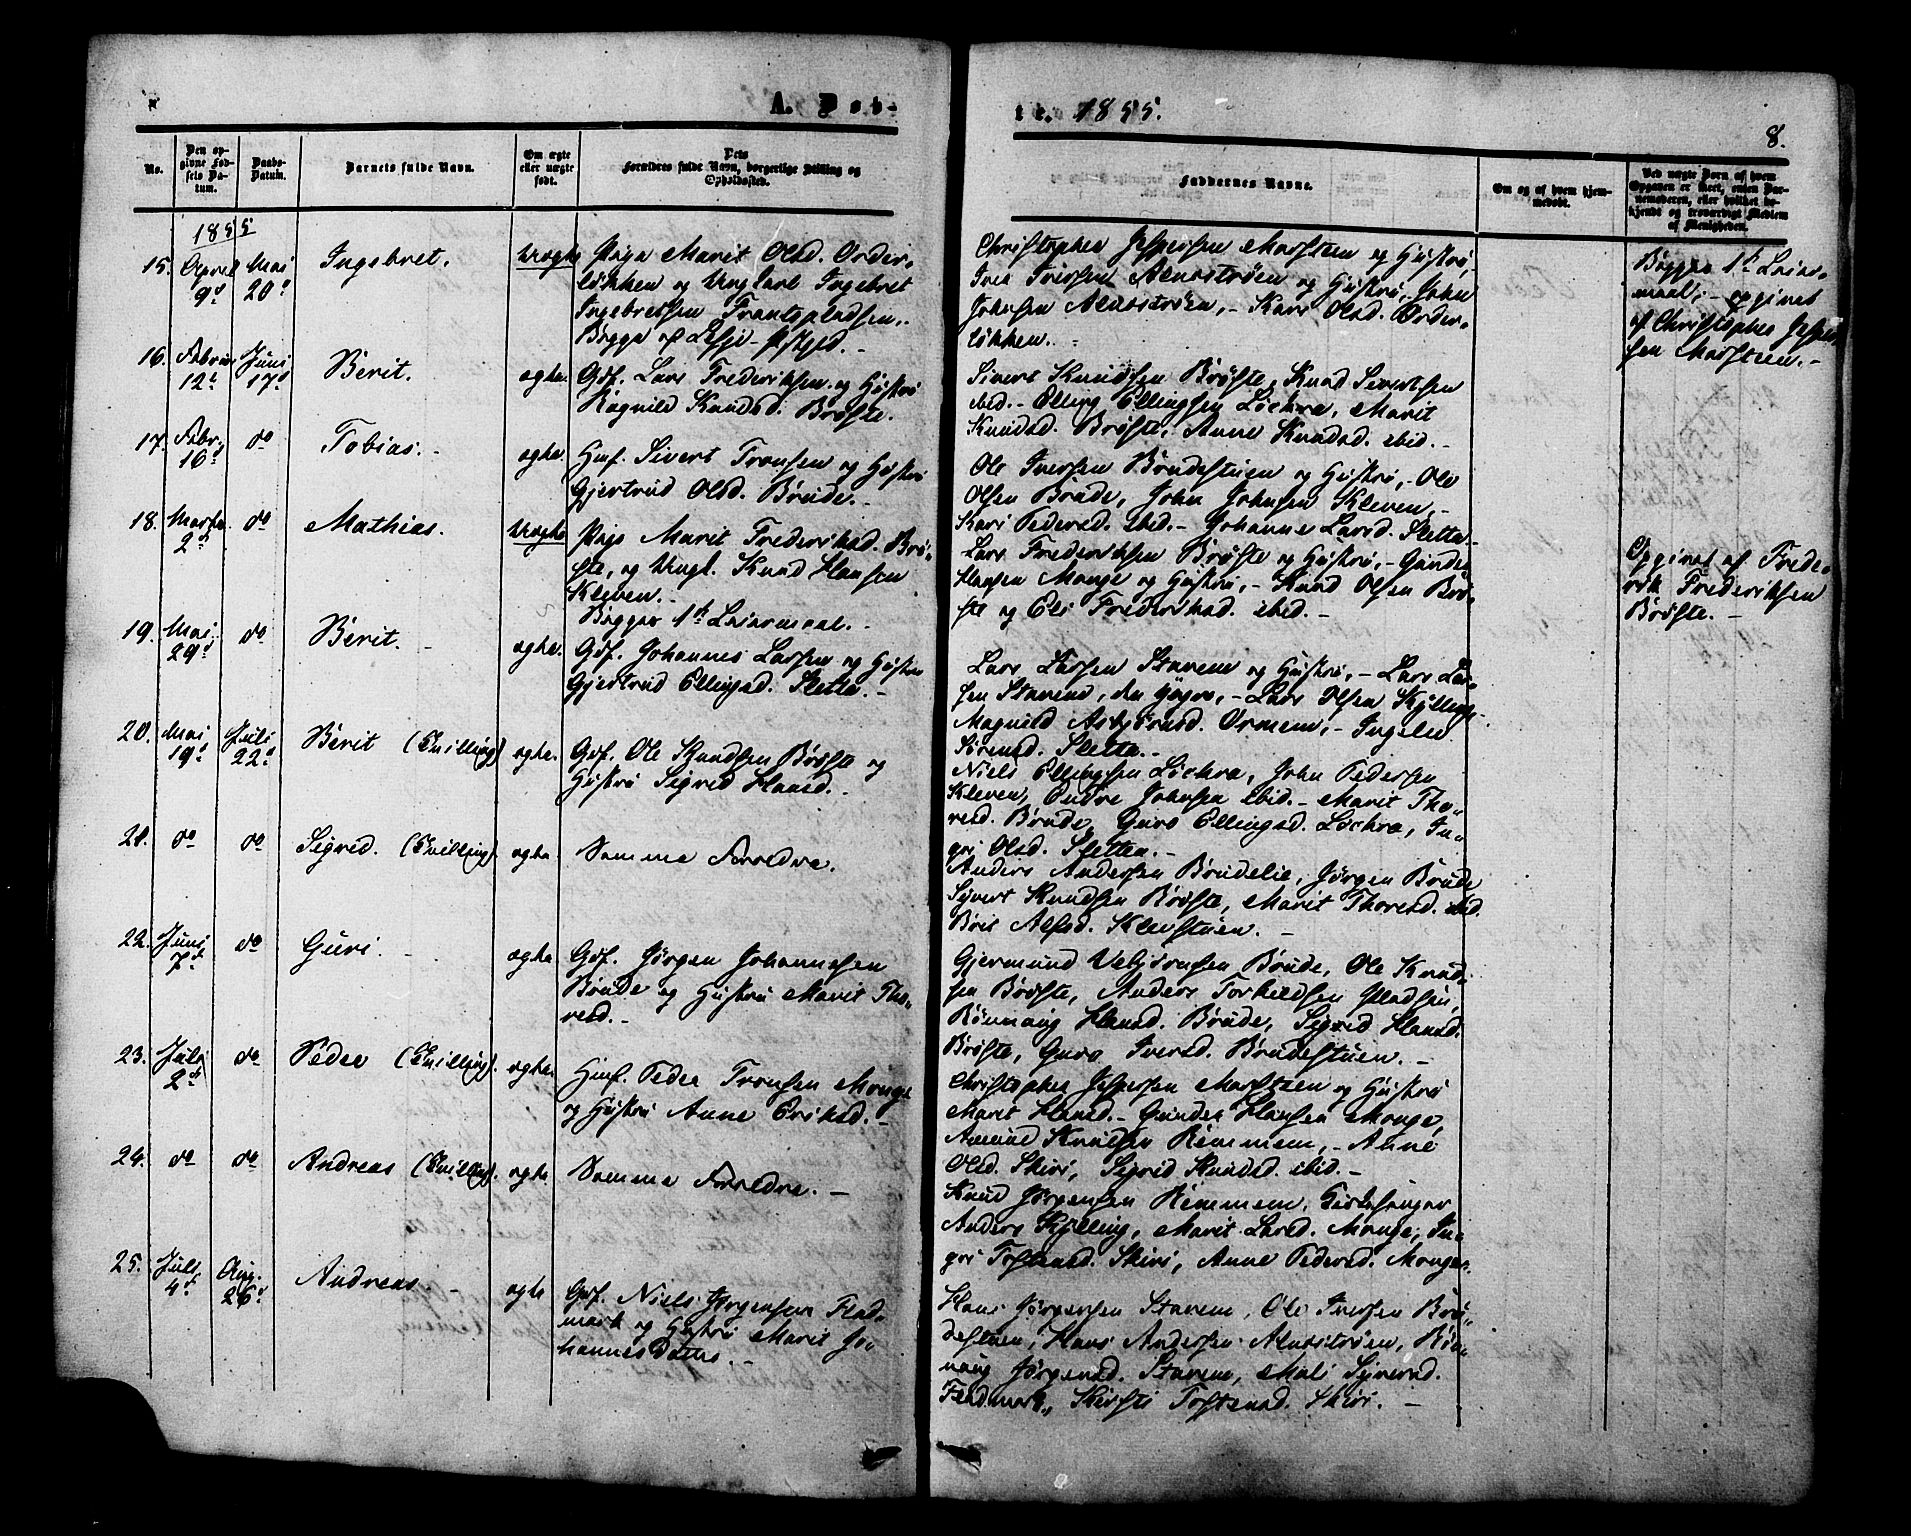 A. Døb-
te. 1855.
8.
No.
Den op-
givne Fød-
sels Da-
tum.
Daabs-
Datum.
Barnets fulde Navn.
Om ægte
eller uægte
født.
Dets
Forældres fulde Navn, borgerlige Stilling og
Opholdssted.
Faddernes Navne.
Om og af hvem hjem-
medøbt.
Ved uægte Børn af hvem
Opgaven er skeet, enten Bar-
nemoderen, eller hvilket be-
kjendt og troværdigt Medlem
af Menigheden.
1855
15. April 9d Mai 20d Ingebret. Uægte
Pige Marit Olsd. Order-
løkken og Ungkarl Ingebret
Ingebretsen Trantpladsen,
Begge af Lesje Pstgjd. -
Christopher Jespersen Marstein og Hustrø,
Iver Iversen Alnæstrøen og Hustrø, John
Johnsen Alnæstrøen, - Kari Olsd. Order-
løkken. -
Begges 1st Leier-
maal; - opgivet
af Christopher Jesper-
sen Marstein. -
16. Februar 12t Juni 17d Berit. ægte.
Gdf. Lars Frederiksen og Hustrø
Ragnild Knudsd. Brøste.
Sivert Knudsen Brøste, Knud Sivertsen
ibid. - Elling Ellingsen Løchra, Marit
Knudsd. Brøste, Anne Knudsd. ibid. -
17. Febr. 16d do Tobias. - ægte.
Hmf. Sivert Tronsen og Hustrø
Gjertrud Olsd. Brude. -
Ole Iversen Brudestuen og Hustrø, - Ole
Olsen Brude, John Johnsen Kleven, -
Kari Pedersd. ibid. - Johanne Larsd. Sletta.
18. Marts 2d do Mathias. Uægte
Pige Marit Frederiksd. Brø-
ste, og Ungk. Knud Hansen
Kleven. -
Begges 1st Leiermaal. -
Lars Frederiksen Brøste og Hustrø, - Gunder
Hansen Monge og Hustrø, - Knud Olsen Brø-
ste og Eli Frederiksd. ibid. -
Opgivet af Frede-
rik Frederiksen
Brøste. -
19. Mai 29d do Berit. - ægte.
Gdf. Johannes Larsen og Hustrø
Gjertrud Ellingsd. Sletta. -
Lars Larsen Stavem og Hustrø, - Lars Lar-
sen Stavem, den yngre, - Lars Olsen Kylling
Magnild Asbjørnsd. Ormem, - Ingeleu
Sørensd. Sletta. -
20. Mai 19d Juli 22d Berit (Tvilling) ægte.
Gdf. Ole Knudsen Brøste og
Hustrø Sigrid Hansd. -
Niels Ellingsen Løchra, John Pedersen
Kleven, Endre Johnsen ibid. - Marit Tho-
resd. Brude, Guro Ellingsd. Løchra, In-
gri Olsd. Sletten. -
21. do do Sigrid. (Tvilling). ægte
Samme Forældre.
Anders Andersen Brudelie, Jørgen Brude
Syvert Knudsen Brøste, Marit Thoresd. ibid.
Brit Alfsd. Klevstuen. -
22. Juni 7d do Guri. - ægte
Gdf. Jørgen Johannesen
Brude og Hustrø Marit Tho-
resd. -
Gjermund Vebjørnsen Brude, Ole Knud-
sen Brøste, Anders Torkildsen Pladsen,
Rønnaug Hansd. Brude, Sigrid Hansd.
Brøste, Guro Iversd. Brudestuen. -
23. Juli 2d do Peder (Tvilling). ægte.
Hmf. Peder Tronsen Monge
og Hustrø Anne Eriksd. -
Christopher Jespersen Marstein og Hustrø
Marit Hansd. - Gunder Hansen Monge,
Amund Knudsen Remmem, - Anne
Olsd. Skiri, Sigrid Knudsd. ibid. -
24. do do Andreas (Tvilling). ægte
Samme Forældre. -
Knud Jørgensen Remmem, Kirkesanger
Anders Kylling, Marit Larsd. Monge, In-
gri Tostensd. Skiri, Anne Pedersd. Monge.
25. Juli 4d Aug. 26d Andreas - ægte
Gdf. Niels Jørgensen Flad-
mark og Hustrø Marit Jo-
hannesdatter. -
Hans Jørgensen Stavem, Ole Iversen Brø-
destuen, Hans Andersen Alnæstrøen, Røn-
naug Jørgensd. Stavem, Mali Syversd.
Fladmark, Kirsti Tostensd. Skiri. -